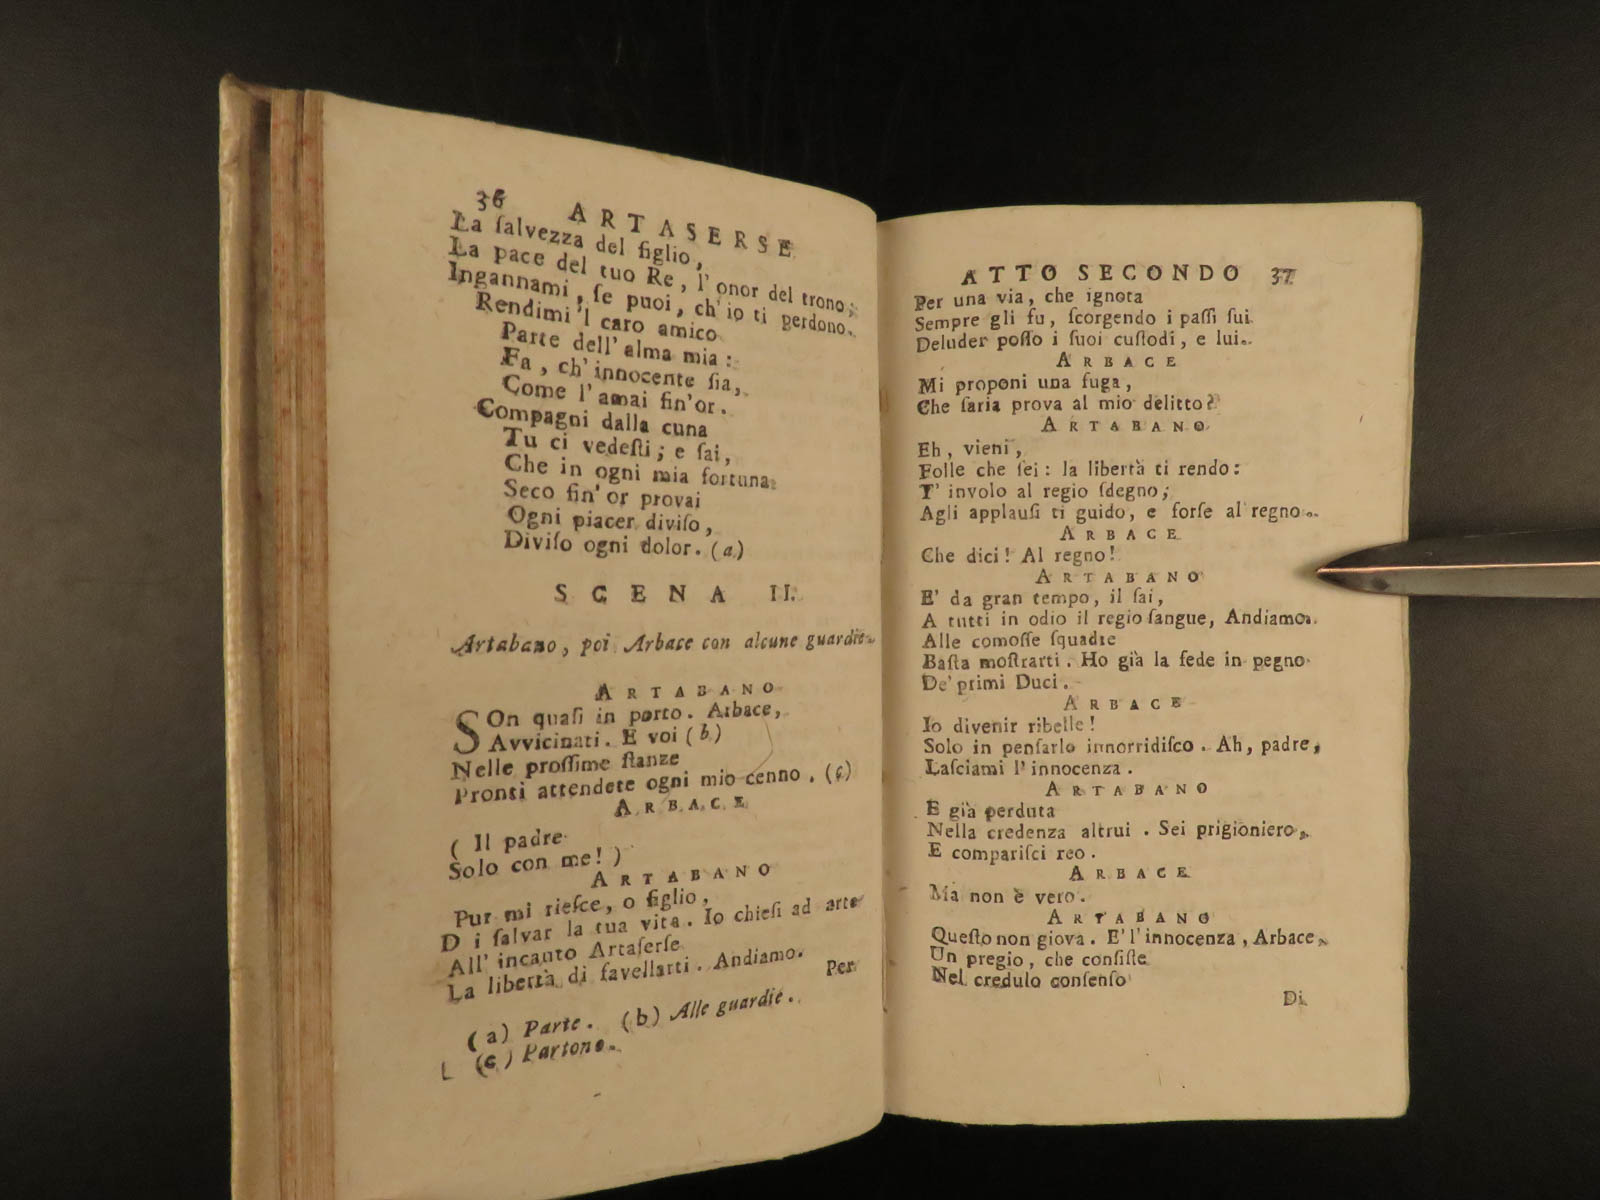 36 ARTASERSE
La ſalvezza del figlio,
La pace del tuo Re, l'onor del trono;
Ingannami, ſe puoi, ch'io ti perdono.
Rendimi 'l caro amico
Parte dell'alma mia:
Fa, ch'innocente ſia,
Come l'amai fin'or.
Compagni dalla cuna
Tu ci vedeſti; e ſai,
Che in ogni mia fortuna
Seco fin'or provai
Ogni piacer diviſo,
Diviſo ogni dolor. (a)
SCENA II.
Artabano, poi Arbace con alcune guardie.
ARTABANO
SOn quaſi in porto. Arbace,
Avvicinati. E voi (b)
Nelle proſſime ſtanze
Pronti attendete ogni mio cenno. (c)
ARBACE
( Il padre
Solo con me! )
ARTABANO
Pur mi rieſce, o figlio,
D i ſalvar la tua vita. Io chieſi ad arte
All'incauto Artaſerſe
La libertà di favellarti. Andiamo.
Per
(a) Parte. (b) Alle guardie.
(c) Partono.
ATTO SECONDO 37
Per una via, che ignota
Sempre gli fu, ſcorgendo i paſſi ſui
Deluder poſſo i ſuoi cuſtodi, e lui.
ARBACE
Mi proponi una fuga,
Che ſaria prova al mio delitto?
ARTABANO
Eh, vieni,
Folle che ſei: la libertà ti rendo:
T'involo al regio ſdegno;
Agli applauſi ti guido, e forſe al regno..
ARBACE
Che dici! Al regno!
ARTABANO
E' da gran tempo, il ſai,
A tutti in odio il regio ſangue, Andiamo.
Alle comoſſe ſquadre
Baſta moſtrarti. Ho già la fede in pegno
De' primi Duci.
ARBACE
Io divenir ribelle!
Solo in penſarlo innorridiſco. Ah, padre,
Laſciami l'innocenza.
ARTABANO
E già perduta
Nella credenza altrui. Sei prigioniero,
E compariſci reo.
ARBACE
Ma non è vero.
ARTABANO
Queſto non giova. E' l'innocenza, Arbace,
Un pregio, che conſiſte
Nel credulo conſenſo
Di